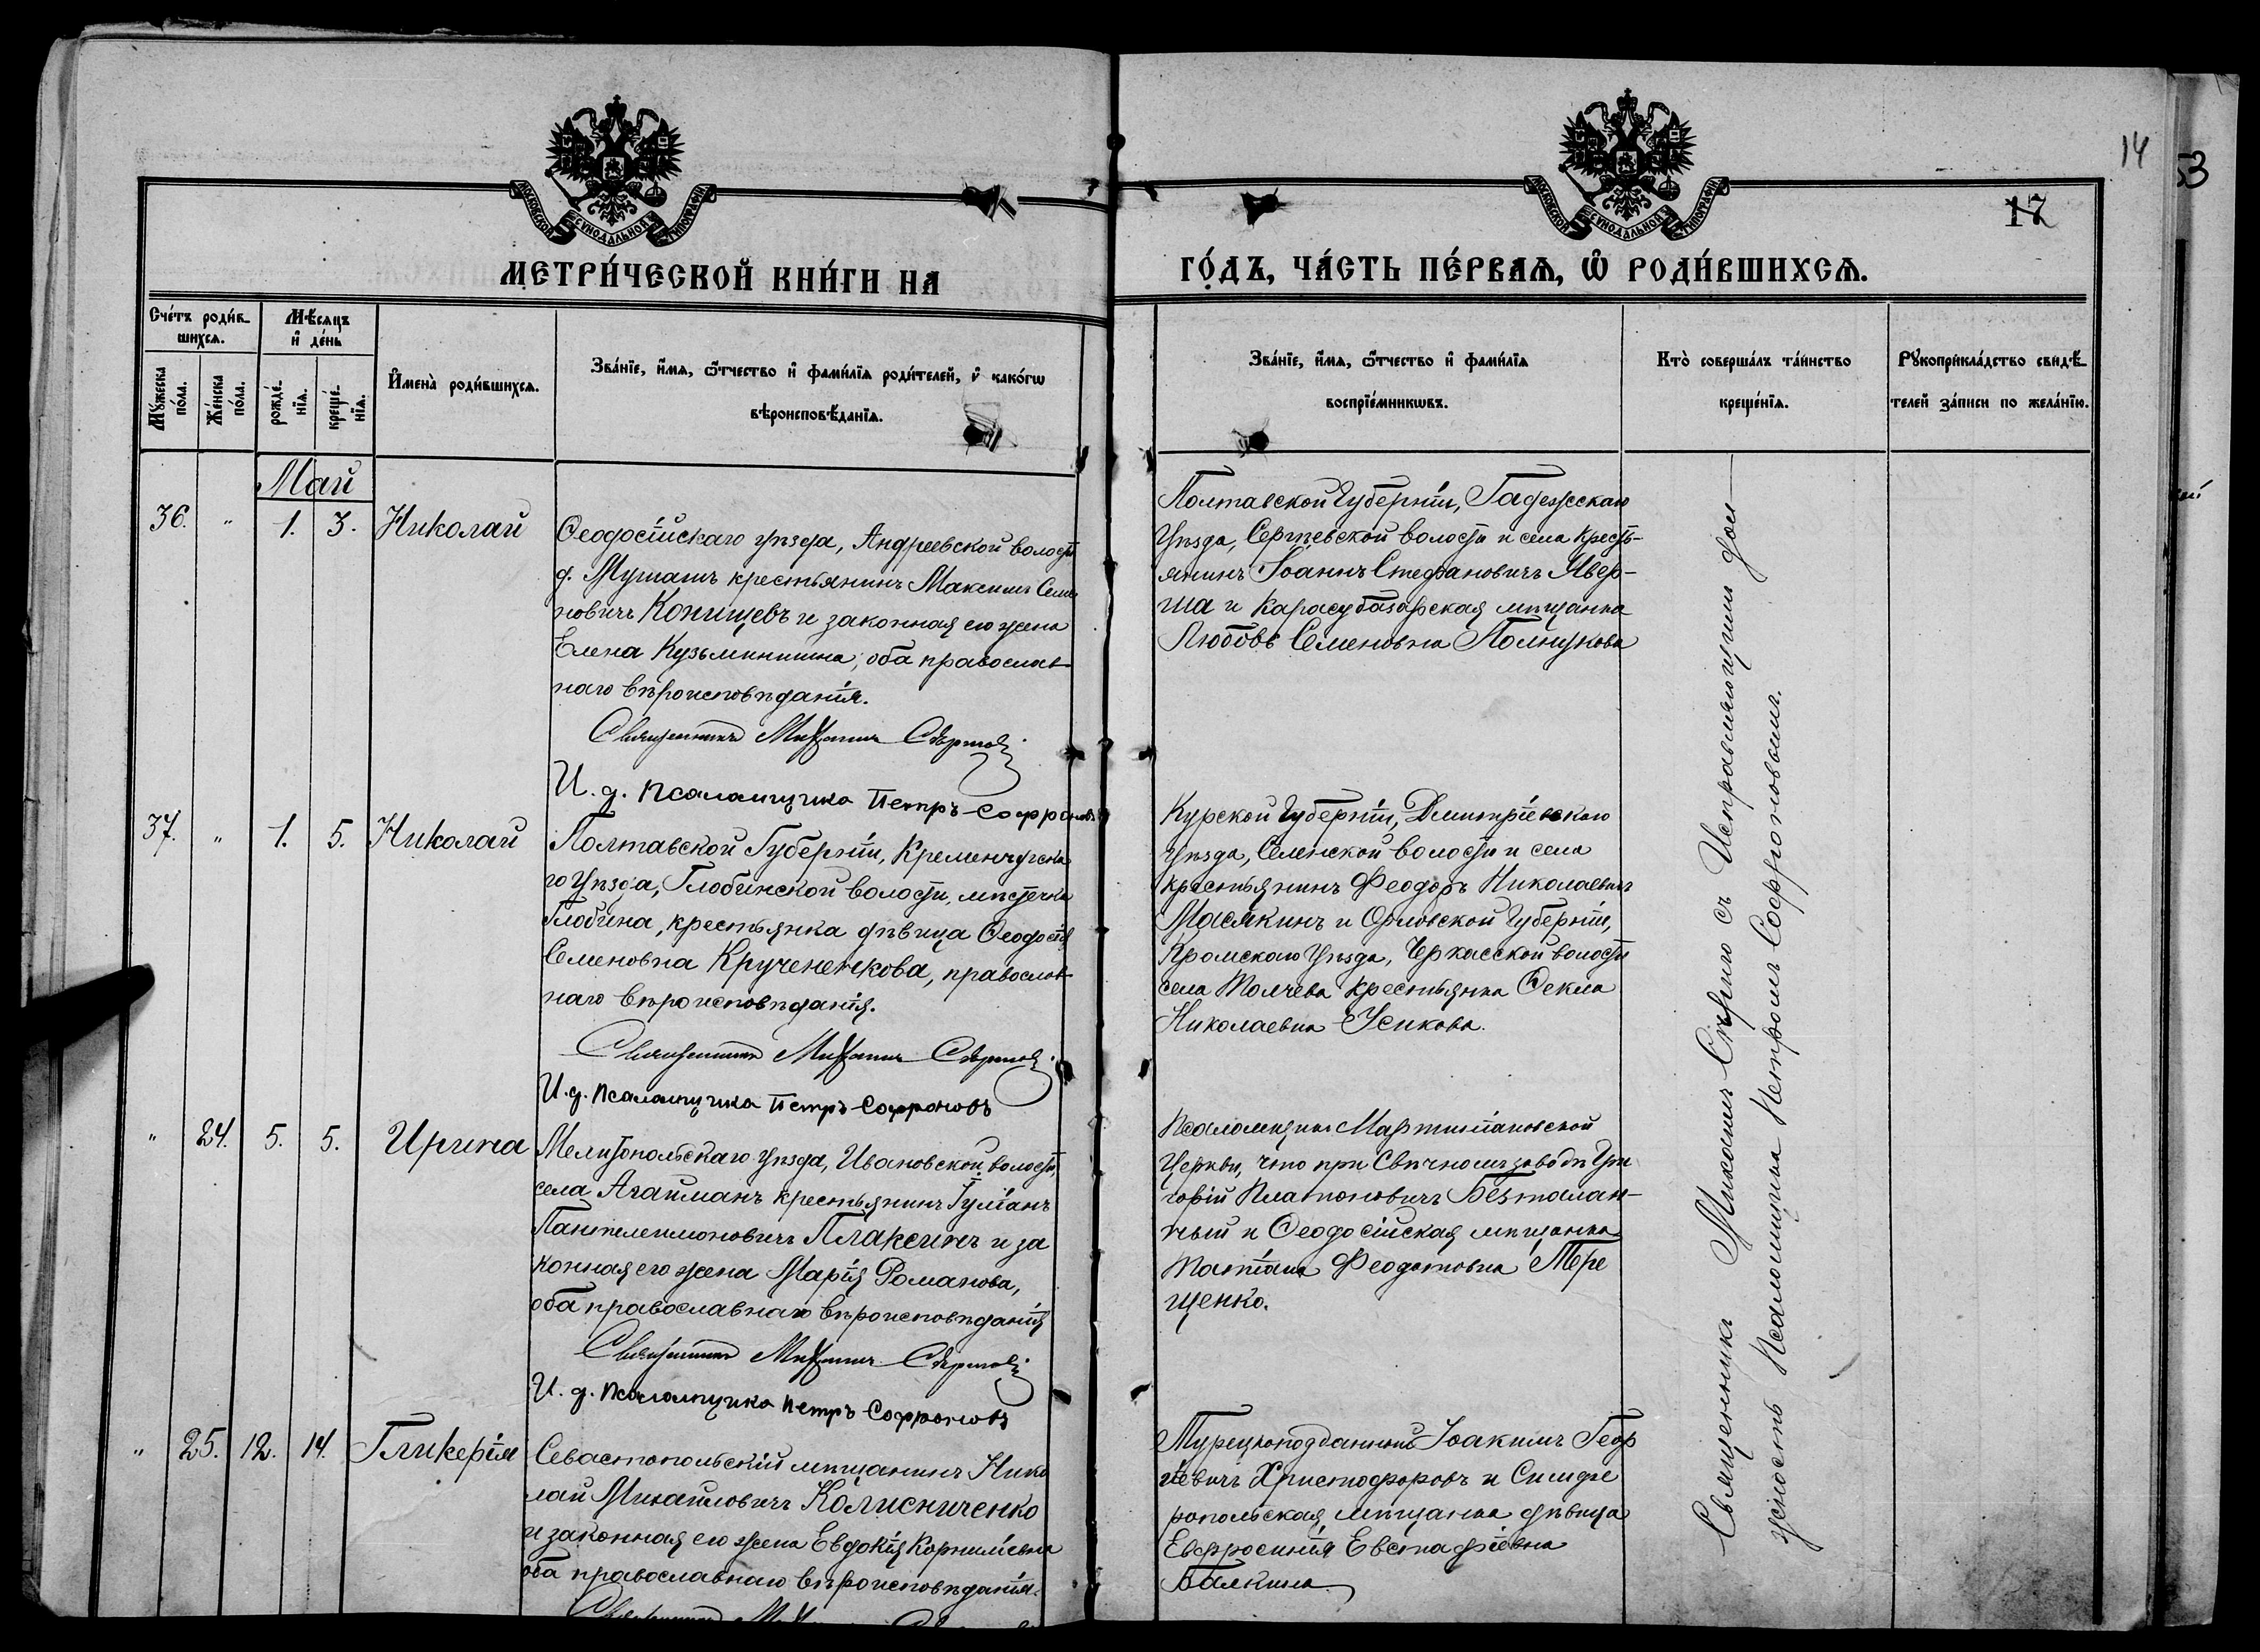 14
53
17
МОСКОВСКОЙ СУНОДАЛЬНОЙ ТИПОГРАФІИ
МОСКОВСКОЙ СУНОДАЛЬНОЙ ТИПОГРАФІИ
МЕТРИ́ЧЕСКОЙ КНИ́ГИ НА
ГО́ДЪ, ЧА́СТЬ ПЕ́РВАЯ, Ѡ РОДИ́ВШИХСЯ.
Сче́тъ роди́в-
шихся.
Мꙋ́жеска
по́ла.
Же́нска
по́ла.
Мѣ́сяцъ
и҆ де́нь
рожде́-
нїя.
креще́-
нїя.
И҆мена̀ роди́вшихся.
Зва́нїе, и҆́мя, ѻ҆́тчество и҆ фами́лїя роди́телей, и҆ како́гѡ
вѣроисповѣ́данїя.
Зва́нїе, и҆́мя, ѻ҆́тчество и҆ фами́лїя
воспрїе́мникѡвъ.
Кто̀ соверша́лъ та́инство
креще́нїя.
Рꙋкоприкла́дство свидѣ́-
телей за́писи по жела́нїю.
Май
36. " 1. 3. Николай
Ѳеодосійскаго уѣзда, Андреевской волости
д. Мушашъ крестьянинъ Максимъ Семе
новичъ Конищевъ и законная его жена
Елена Кузьминишна, оба православ-
наго вѣроисповѣданія.
Священникъ Михаилъ Сѣрновъ
И. д. псаломщика Петръ Софроновъ
Полтавской Губерніи, Гадяжскаго
Уѣзда, Сергѣевской волости и села кресть-
янинъ Іоаннъ Стефановичъ Явер-
ша и Карасубазарская мѣщанка
Любовь Семеновна Полнукова
37. " 1. 5. Николай
Полтавской Губерніи, Кременчугска
го Уѣзда, Глобинской волости, мѣстечка
Глобина, крестьянка дѣвица Ѳеодосія
Семеновна Крученкова, православ-
наго вѣроисповѣданія.
Священникъ Михаилъ Сѣрновъ
И. д. псаломщика Петръ Софроновъ
Курской Губерніи, Дмитріевскаго
Уѣзда, Селенской волости и села
крестьянинъ Феодоръ Николаевичъ
Масякинъ и Орловской Губерніи,
Кромскаго Уѣзда, Черкасской волости
села Толчева крестьянка Ѳекла
Николаевна Усикова.
" 24. 5. 5. Ирина
Мелитопольскаго уѣзда, Ивановской волости,
села Агайманъ крестьянинъ Іуліанъ
Пантелеимоновичъ Плаксинъ и за
конная его жена Марія Романова,
оба православнаго вѣроисповѣданія
Священникъ Михаилъ Сѣрновъ
И. д. псаломщика Петръ Софроновъ
Псаломщикъ Мартиніановской
Церкви, что при Свѣчномъ заводѣ Гри
горій Платоновичъ Безталан-
ный и Ѳеодосійская мѣщанка
Татіана Феодотовна Тере
щенко.
" 25. 12. 14. Гликерія
Севастопольскій мѣщанинъ Нико
лай Михайловичъ Колисниченко
и законная его жена Евдокія Корниліевна
оба православнаго вѣроисповѣданія.
Турецкоподданный Іоакимъ Геор
гіевичъ Христофоровъ и Симфе
ропольская мѣщанка дѣвица
Евфросинія Евстафіевна
Балкина
Священникъ Михаилъ Сѣрновъ съ Исправляющимъ дол
жность Псаломщика Петромъ Софроновымъ.